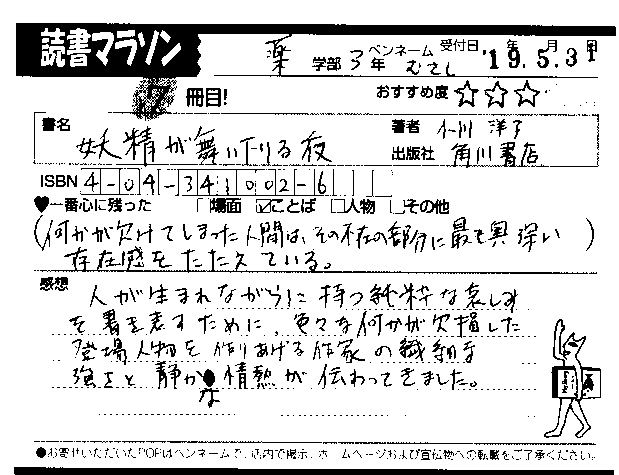 読書マラソン
薬 学部 3年 ペンネーム むさし 受付日 '19.5.31
17 冊目! おすすめ度 ☆☆☆
書名 妖精が舞い下りる夜
著者 小川 洋子
出版社 角川書店
ISBN 4-04-341002-6
♥一番心に残った □場面 ☑ことば □人物 □その他
(何かが欠けてしまった人間は、その不在の部分に最も奥深い
存在感をたたえている。)
感想
人が生まれながらに持つ純粋な哀しみ
を書き表すために、色々な何かが欠損した
登場人物を作りあげる作家の繊細な
強さと静かな情熱が伝わってきました。
●お寄せいただいたPOPはペンネームで、店内で掲示、ホームページおよび宣伝物への転載をご了承ください。